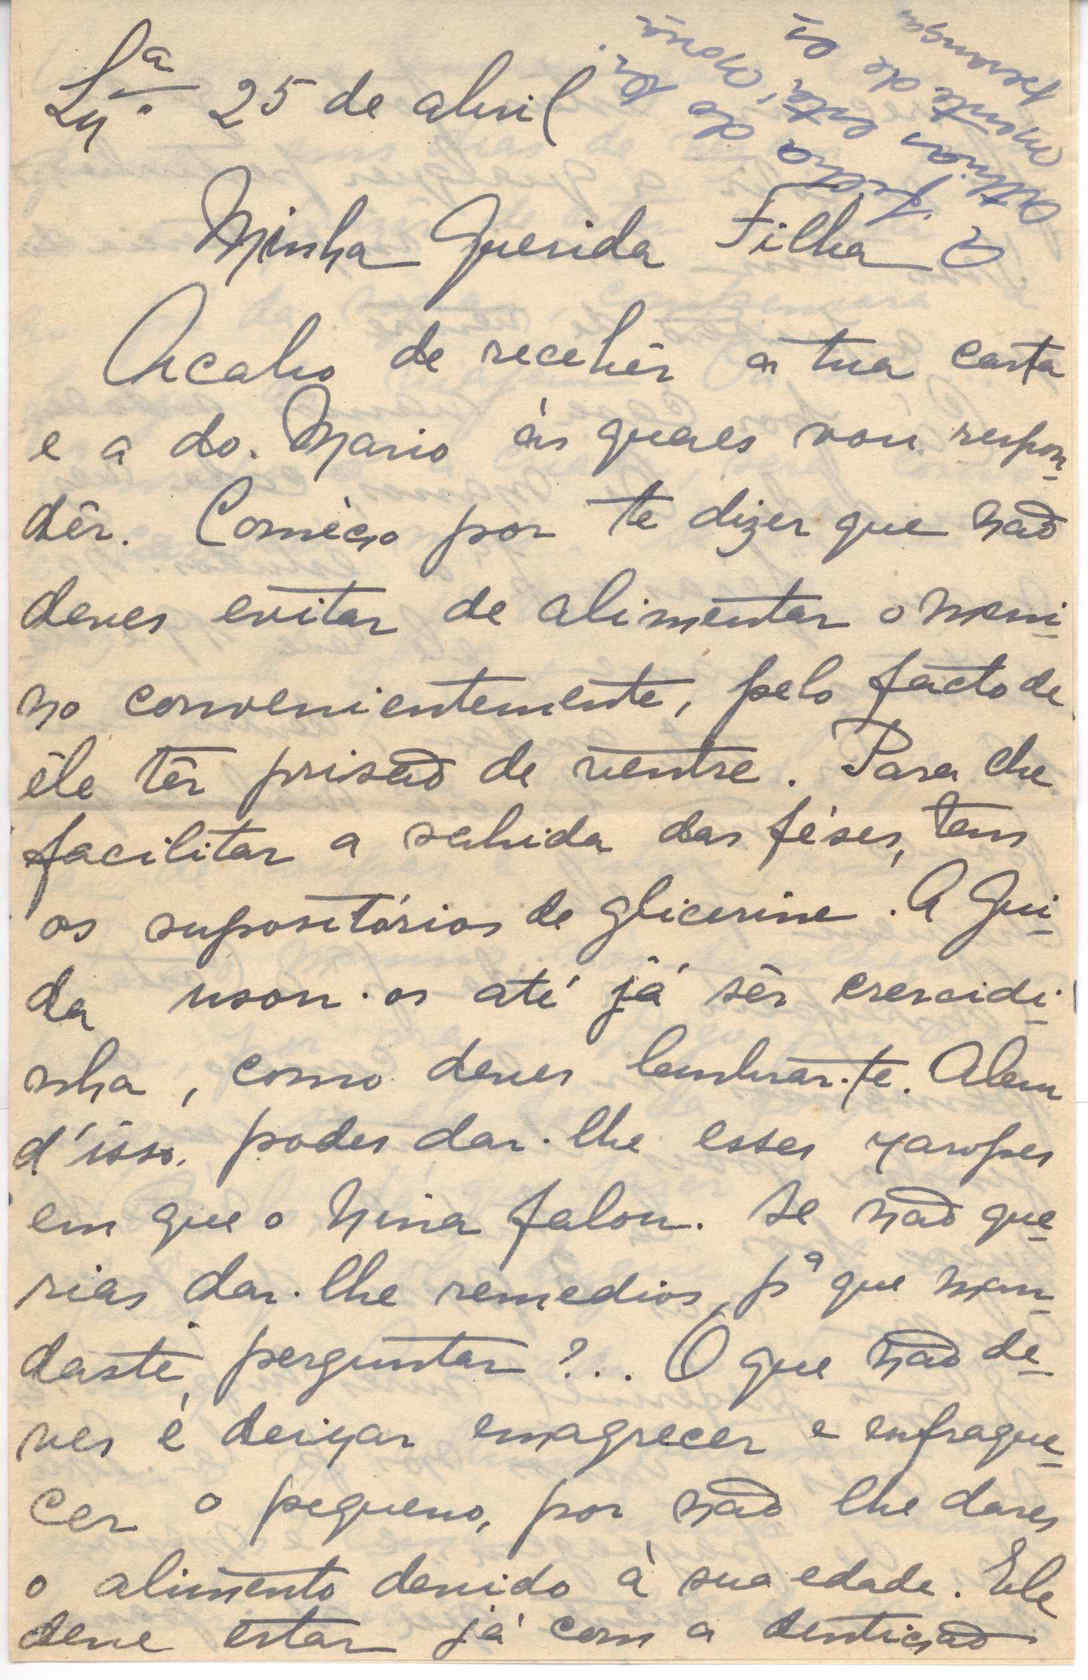 Lx.ª 25 de abril
Minha Querida Filha
Acabo de recebêr a tua carta
e a do. Mario às quaes vou respon-
dêr. Comêço por te dizer que não
deves evitar de alimentar o meni-
no convenientemente, pelo facto de
êle têr prisão de ventre. Para lhe
facilitar a sahida das féses, tens
os supositórios de glicerine. A Gui-
da usou-os até já sêr crescidi-
nha, como deves lembrar-te. Alem
d'isso, podes dar-lhe esses xaropes
em que o Nina falou. Se não que-
rias dar-lhe remedios, pª que man-
daste perguntar?... O que não de-
ves é deixar emagrecer e enfraque-
cer o pequeno, por não lhe dares
o alimento devido à sua edade. Ele
deve estar já com a dentição
A filha do Dr.
está